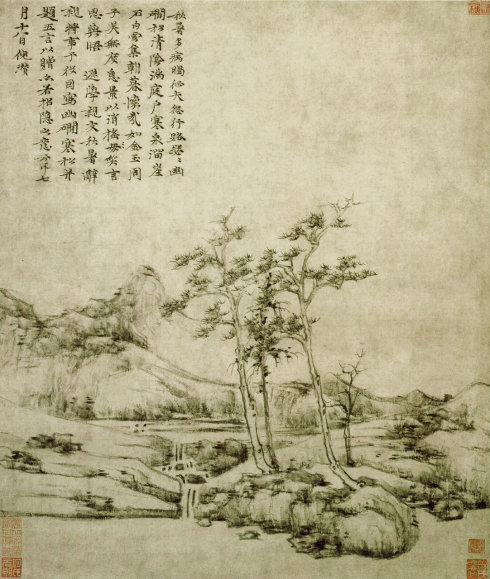 秋暑多病暍征夫怨行路瑟々幽
磵松清陰滿庭戶寒泉溜崖
石白雲集朝暮懷哉如金玉周
子美無度息景以消搖笑言
思與晤 遜學親友秋暑辭
親將事于役因寫幽磵寒松并
題五言以贈亦若招隱之意云耳七
月十八日倪瓚